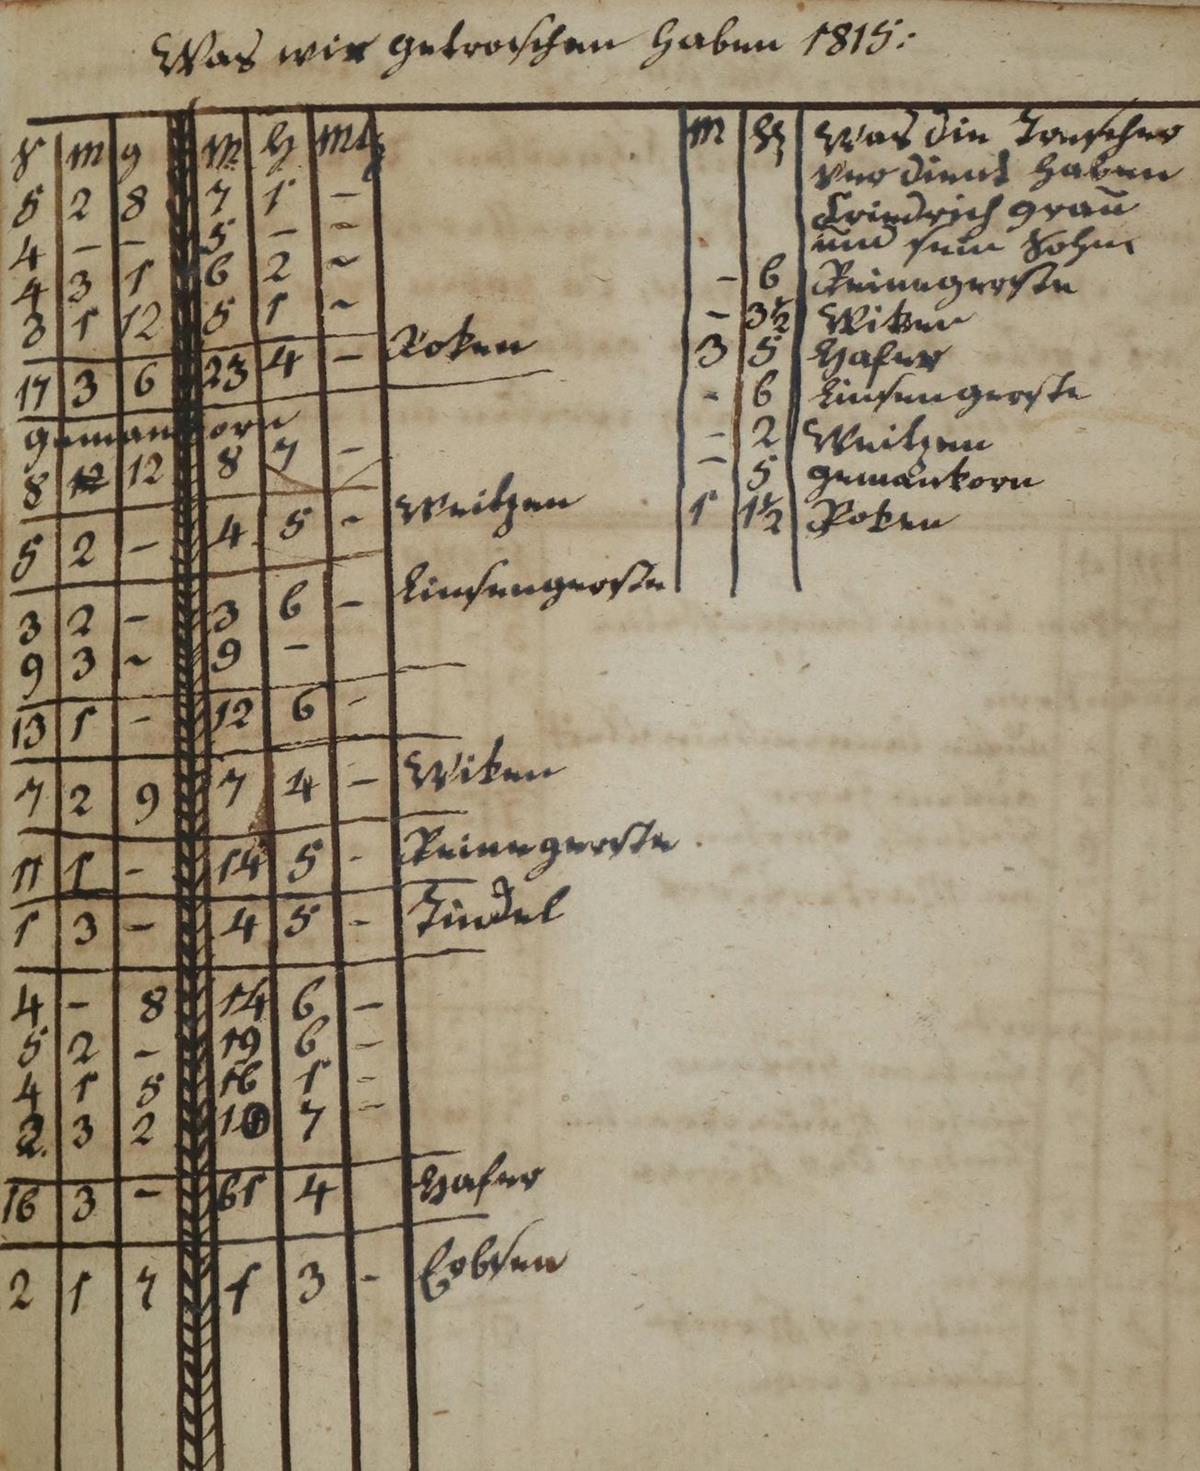 Was wir getroschen haben 1815:
F m g M H Mtz
5 2 8 7 1 –
4 – – 5 – –
4 3 1 6 2 ~
3 1 12 5 1 ~
17 3 6 23 4 – Roken
gemankorn
8 12 8 7 –
5 2 – 4 5 – Weitzen
3 2 – 3 6 – Linsengerste
9 3 ~ 9 –
13 1 – 12 6 –
7 2 9 7 4 – Wiken
11 1 – 14 5 – Reinegerste
1 3 – 4 5 – Dindel
4 – 8 14 6 –
5 2 – 19 6 –
4 1 5 16 1 –
2 3 2 10 7 –
16 3 – 61 4 Hafer
2 1 7 1 3 – Erbsen
M H Was die Drescher
verdient haben
Friedrich grau
und sein Sohn
– 6 Reinegerste
– 3½ Wiken
3 5 Hafer
– 6 Linsengerste
– 2 Weitzen
– 5 gemankorn
1 1½ Roken